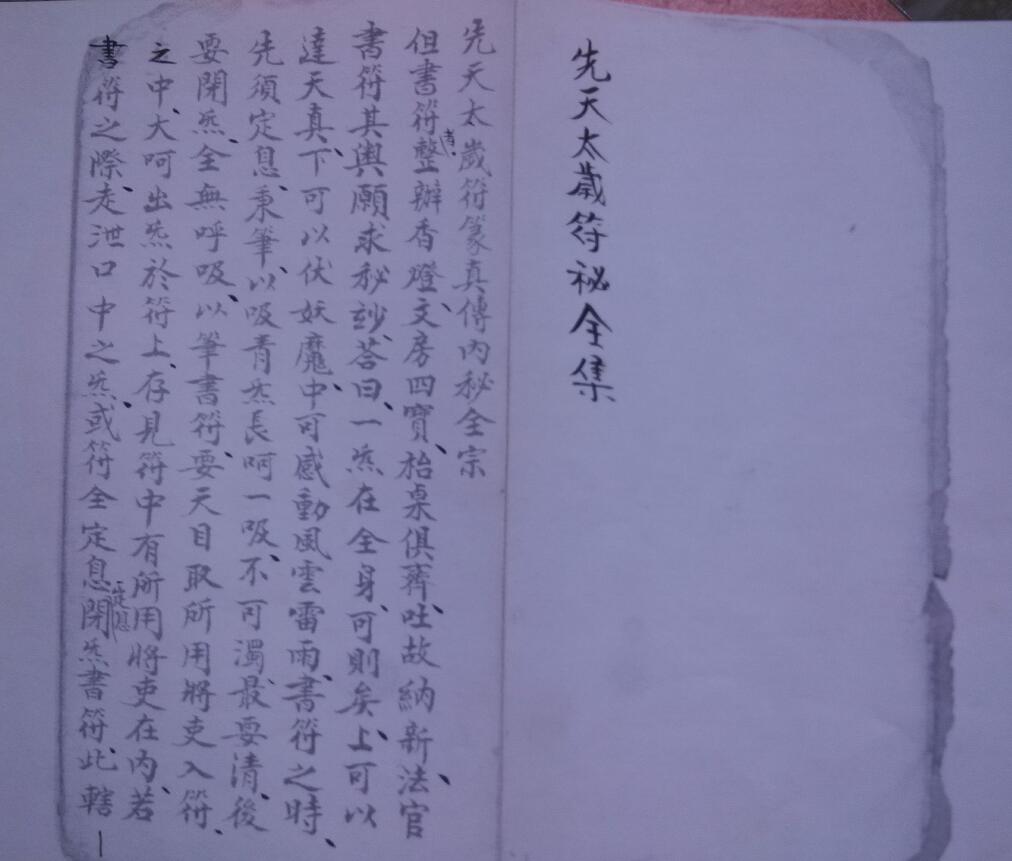 先天太歲符秘全集
先天太歲符篆真傳內秘全宗
但書符者整辦香燈、文房四寶、枱桌俱齊、吐故納新、法官
書符其輿願求秘玅、荅曰、一炁在全身、可則矣、上可以
達天真、下可以伏妖魔、中可感動風雲雷雨、書符之時、
先須定息、秉筆、以吸青炁長呵一吸、不可濁、最要清、後
要閉炁、全無呼吸、以筆書符、要天目取所用將吏入符、
之中、大呵出炁於符上、存見符中有所用將吏在內、若
書符之際、走泄口中之炁、或符全定息定息閉炁書符、此轄